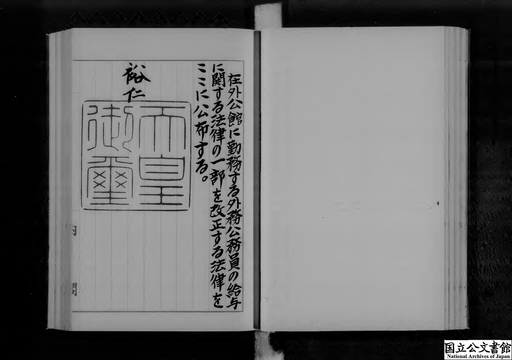 在外公館に勤務する外務公務員の給与
に関する法律の一部を改正する法律を
ここに公布する。
裕仁
天皇
御璽
内
閣
国立公文書館
National Archives of Japan